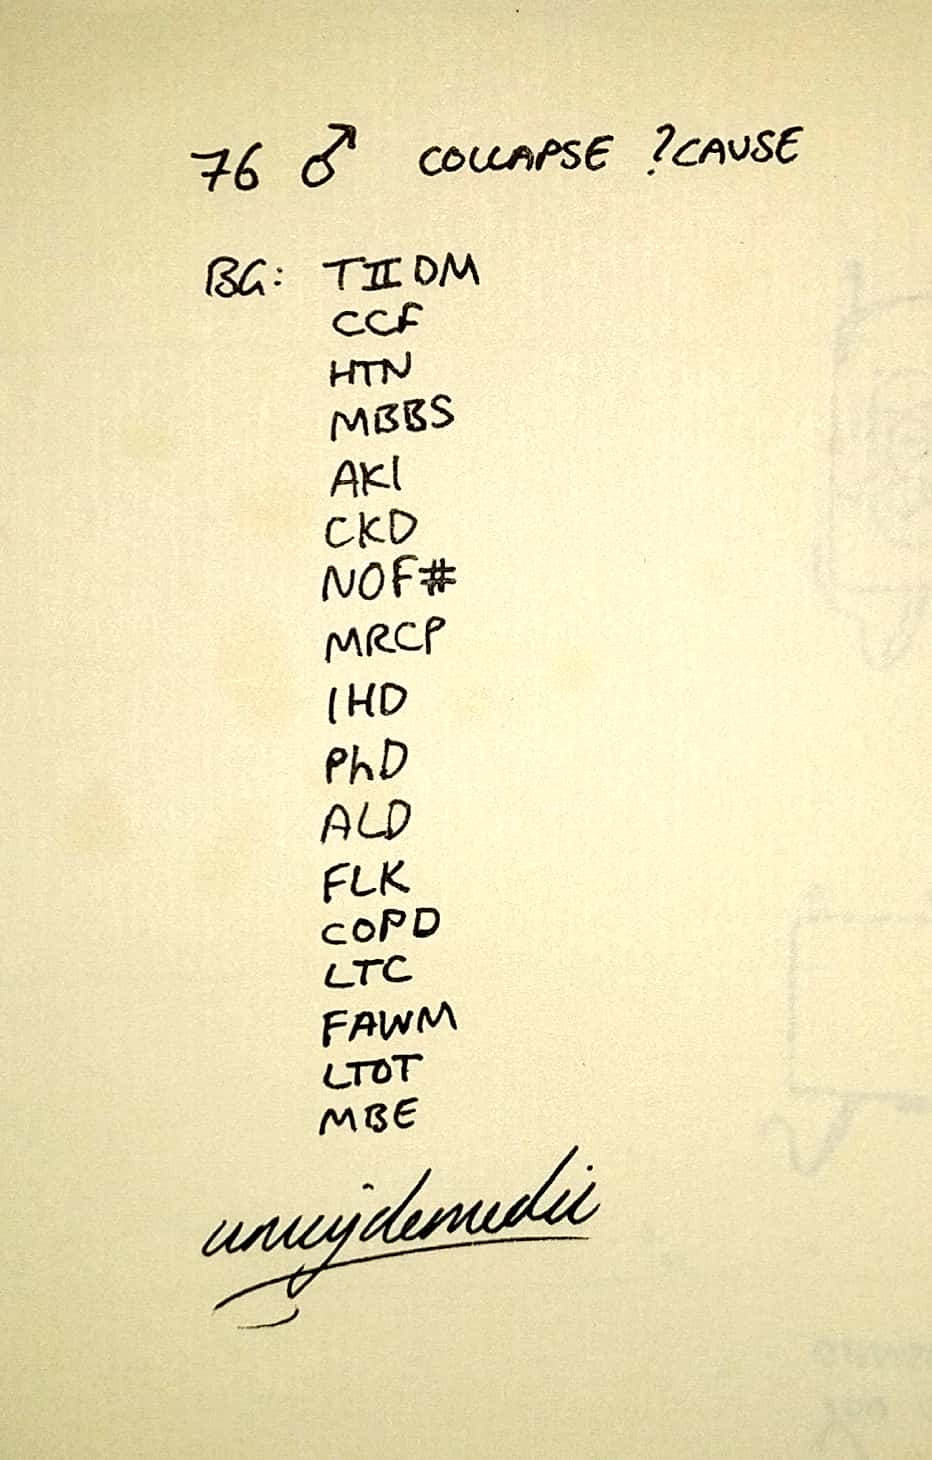 76 ♂ COLLAPSE ?CAUSE
BG: TIIDM
CCF
HTN
MBBS
AKI
CKD
NOF#
MRCP
IHD
PhD
ALD
FLK
COPD
LTC
FAWM
LTOT
MBE